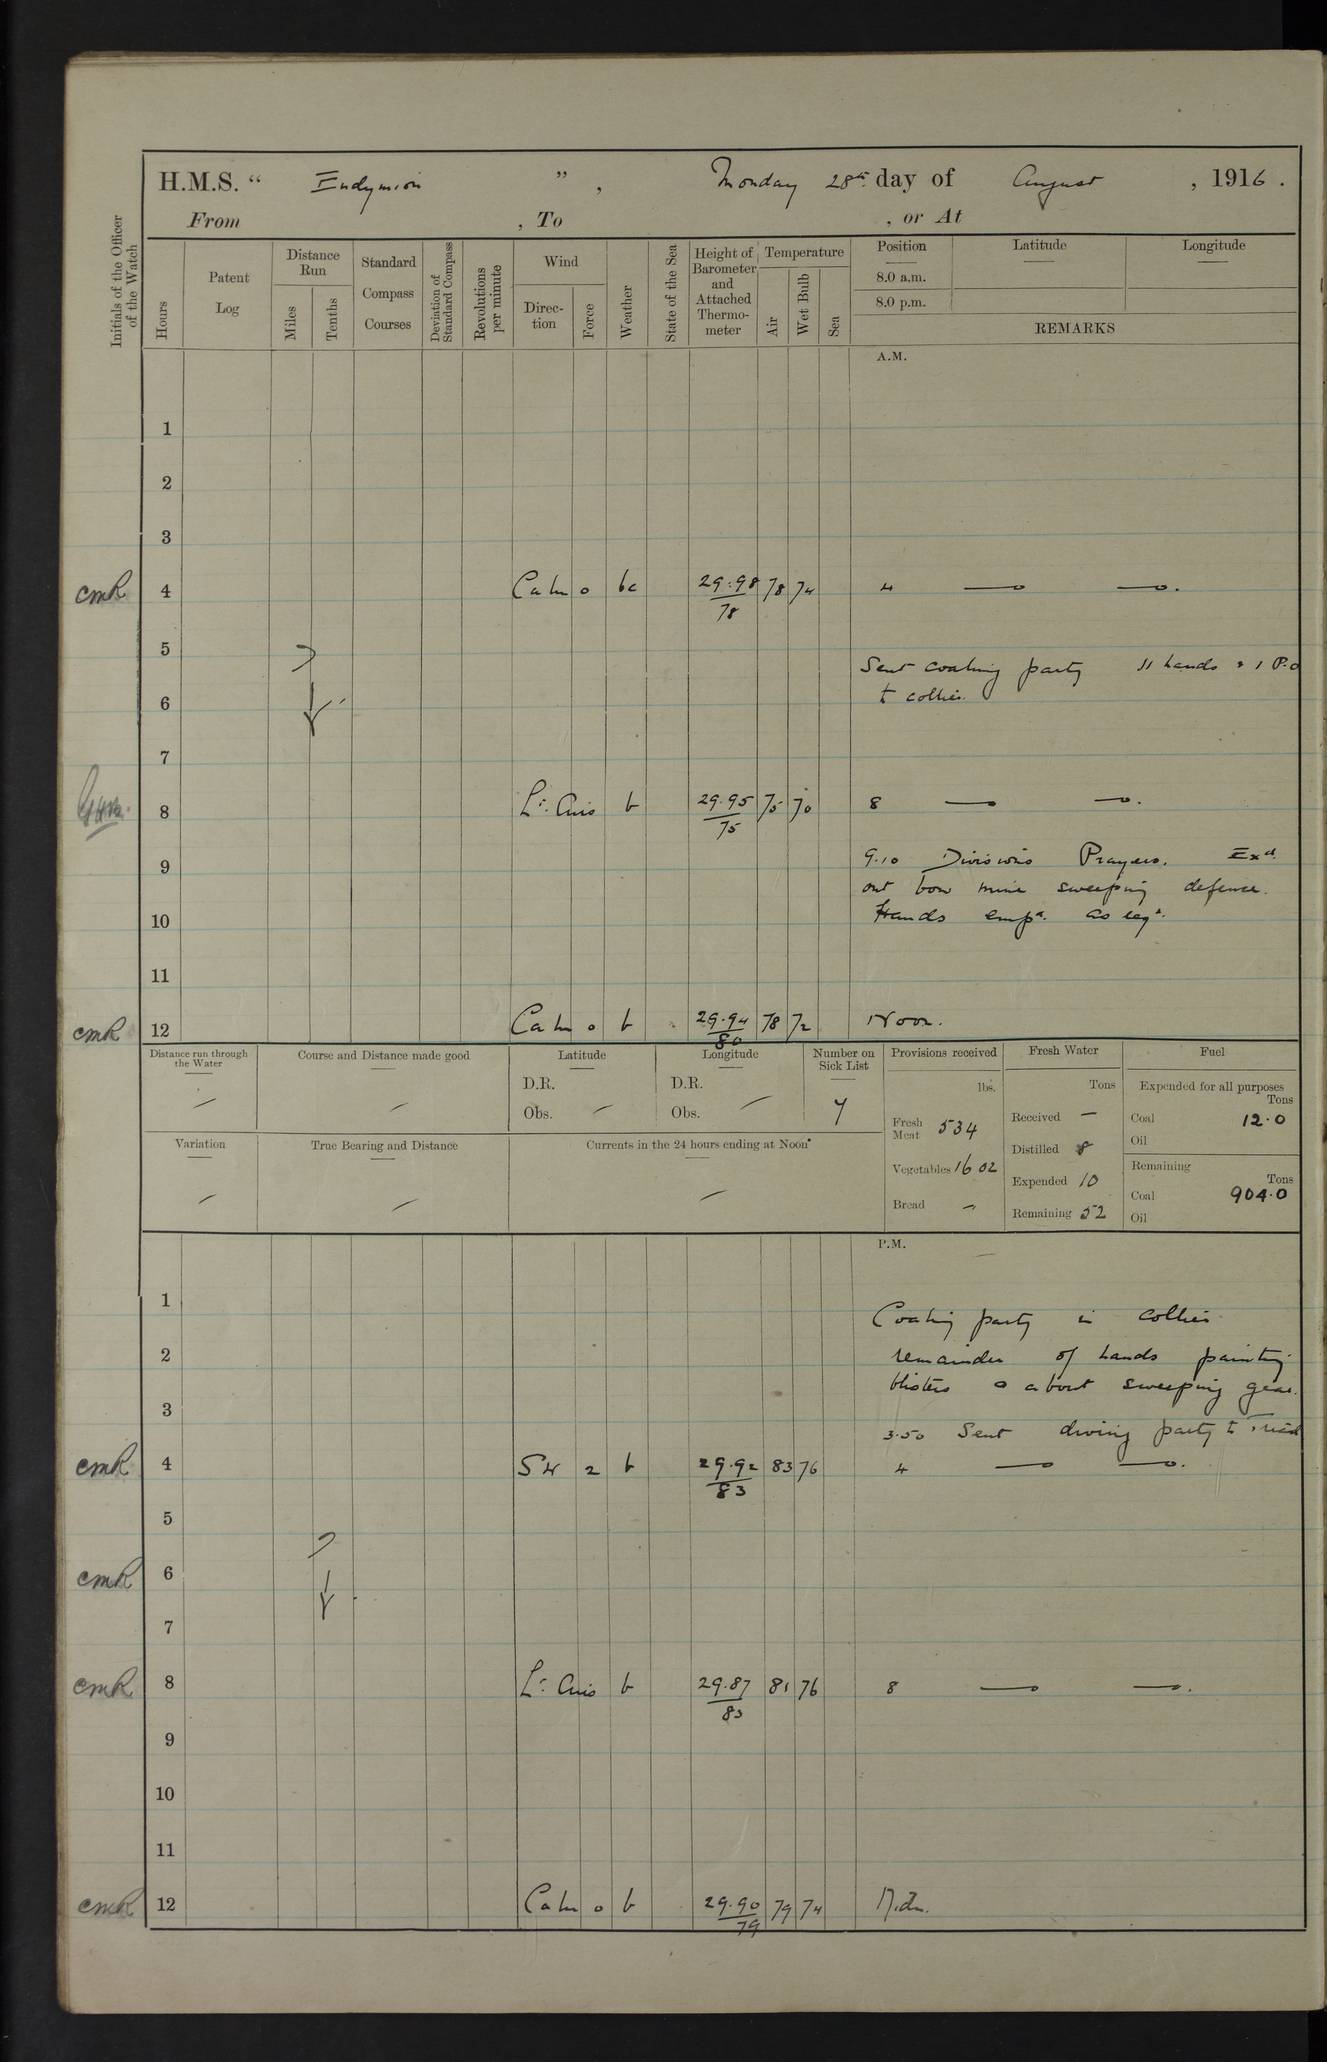 H.M.S. “ Endymion ” , Monday 28th day of August , 1916 .
From , To , or At
Initials of the Officer of the Watch
Hours
Patent Log
Distance Run
Miles
Tenths
Standard Compass Courses
Deviation of Standard Compass
Revolutions per minute
Wind
Direc-tion
Force
Weather
State of the Sea
Height of Barometer and Attached Thermo-meter
Temperature
Air
Wet Bulb
Sea
Position Latitude Longitude
8.0 a.m.
8.0 p.m.
REMARKS
A.M.
1
2
3
CMR 4 Calm 0 bc 29.98 78 74 4
78
5
Sent coaling party 11 hands & 1 P.O
to collier.
6
7
8 Lt. Airs b 29.95 75 70 8
75
9.10 Divisions Prayers. Exd.
9
out bow mine sweeping defence.
Hands empd. as reqd.
10
11
CMR 12 Calm 0 b 29.94 78 72 Noon.
80
Distance run through the Water
Course and Distance made good
Latitude
Longitude
Number on Sick List
Provisions received
Fresh Water
Fuel
D.R. D.R. lbs. Tons Expended for all purposes
Tons
Obs. Obs. 7
Fresh Meat 534
Received — Coal 12.0
Oil
Variation
True Bearing and Distance
Currents in the 24 hours ending at Noon
Distilled 8
Vegetables 1602
Remaining
Expended 10 Tons
Coal 904.0
Bread —
Remaining 52 Oil
P.M.
1
Coaling party in collier
2 remainder of hands painting
blisters & about sweeping gear.
3
3.50 Sent diving party to Triad
CMR 4 SW 2 b 29.92 83 76 4
83
5
CMR 6
7
CMR 8 Lt. Airs b 29.87 81 76 8
83
9
10
11
CMR 12 Calm 0 b 29.90 79 74 Midn.
79